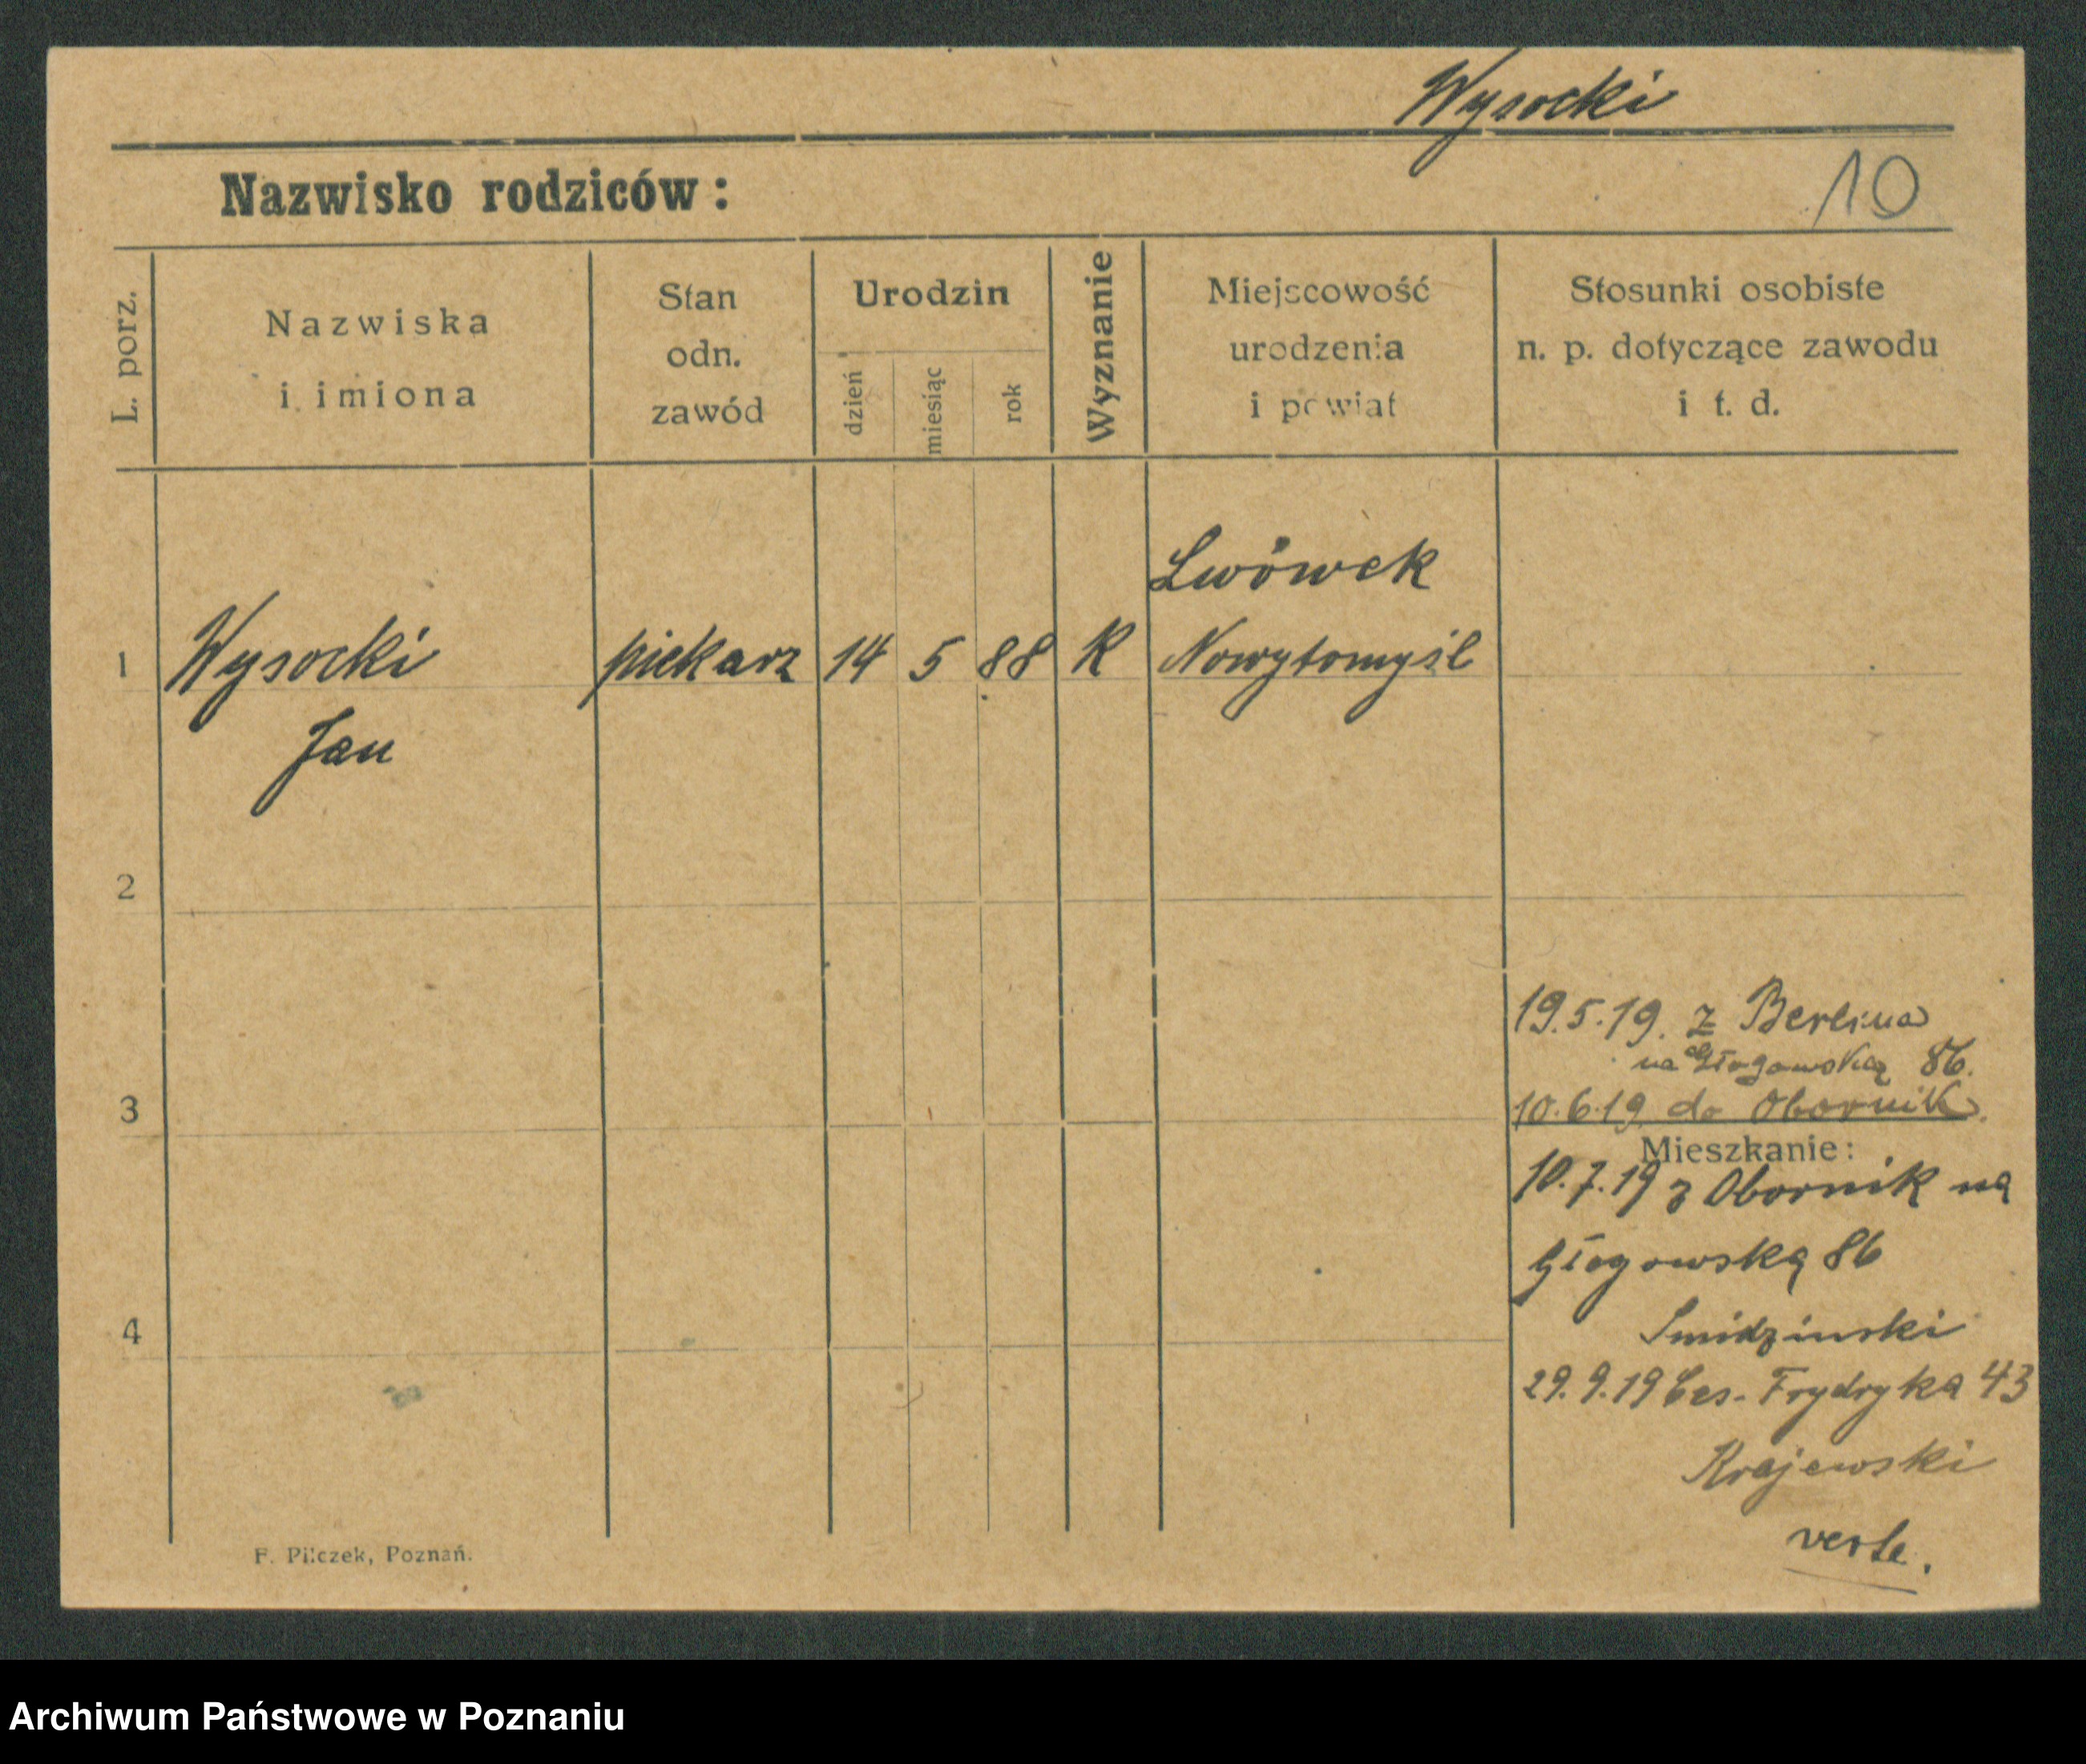 Wysocki
Nazwisko rodziców:
10
L. porz.
Nazwiska
i imiona
Stan
odn.
zawód
Urodzin
dzień
miesiąc
rok
Wyznanie
Miejscowość
urodzenia
i powiat
Stosunki osobiste
n. p. dotyczące zawodu
i t. d.
Lwówek
1 Wysocki piekarz 14 5 88 K Nowytomyśl
Jan
2
19.5.19. z Berlina
na Głogowską 86.
3 10.6.19 do Obornik
Mieszkanie:
10.7.19 z Obornik na
Głogowską 86
4 Smidzinski
29.9.19 Ces. Frydryka 43
Krajewski
verte.
F. Pilczek, Poznań.
Archiwum Państwowe w Poznaniu